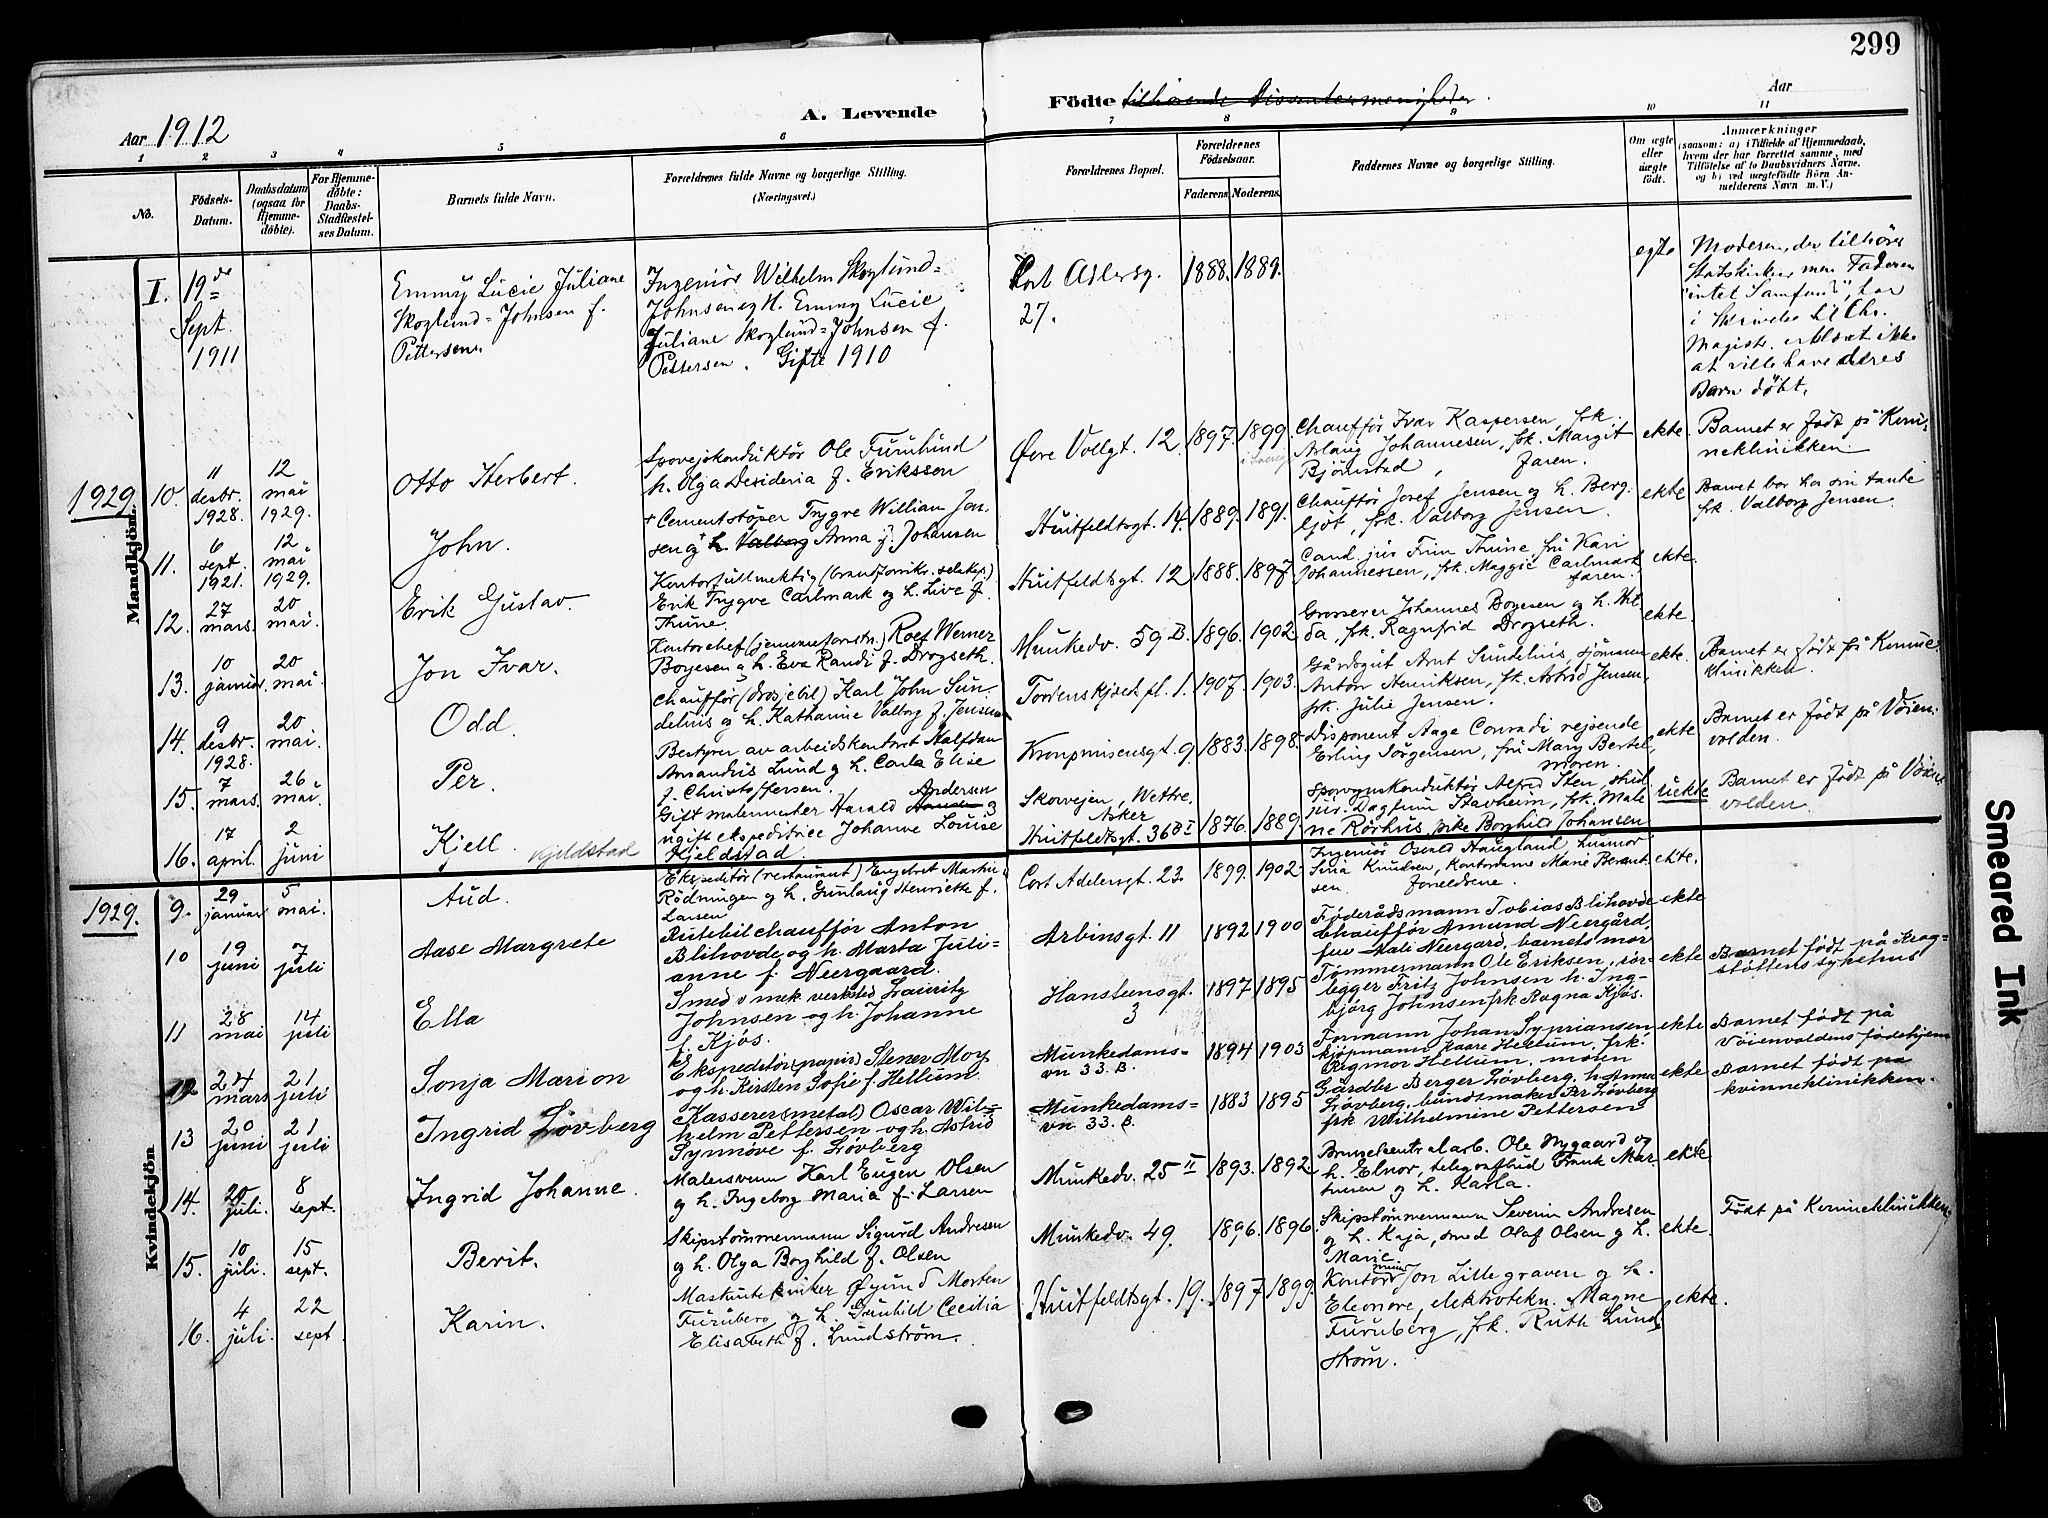 299
Aar 1912
A. Levende
Födte tilhørende Dissentermenigheder.
Aar
1 2 3 4 5 6 7 8 9 10 11
No.
Födsels-
Datum.
Daabsdatum
(ogsaa for
Hjemme-
döbte).
For Hjemme-
döbte:
Daabs-
Stadfæstel-
ses Datum.
Barnets fulde Navn.
Forældrenes fulde Navne og borgerlige Stilling.
(Næringsvei.)
Forældrenes Bopæl.
Forældrenes
Födselsaar.
Faderens. Moderens.
Faddernes Navne og borgerlige Stilling.
Om ægte
eller
uægte
födt.
Anmærkninger
(saasom: a) i Tilfælde af Hjemmedaab,
hvem der har forrettet samme, med
Tilföielse af to Daabsvidners Navne,
og b) ved uægtefödte Börn An-
melderens Navn m. V.)
Mandkjön.
I. 19de
Sept.
1911
Emmy Lucie Juliane
Skoglund-Johnsen f.
Pettersen
Ingeniør Wilhelm Skoglund-
Johnsen og H. Emmy Lucie
Juliane Skoglund-Johnsen f.
Pettersen. Gifte 1910
Cort Adlersg.
27.
1888. 1889.
egte
Moderen, der tilhører
Statskirken, men Faderen
"intet Samfund", har
i Skrivelse til Chr.
Magistr. erklæret ikke
at ville have deres
Barn døbt.
1929.
10. 11 desbr. 1928. 12 mai 1929.
Otto Herbert.
Sporvejskonduktør Ole Furulund
h. Olga Desideria f. Erikssen
Øvre Vollgt. 12. 1897. 1899.
i Sverig
Chauffør Ivar Kaspersen, frk.
Aslaug Johannesen, frk. Margit
Bjørnstad, faren.
ekte.
Barnet er født på Kvin-
neklinikken
11. 6 sept. 1921. 12 mai 1929.
John.
+ Cementstøper Trygve Willian Jen-
sen og + h. Valborg Anna f. Johansen
Huitfeldtsgt. 14. 1889. 1891.
Chauffør Josef Jensen og h. Berg-
ljot, frk. Valborg Jensen.
ekte
Barnet bor hos sin tante
frk. Valborg Jensen.
12. 27 mars. 20 mai.
Erik Gustav.
Kontorfullmektig (brandforsikr. selskap.)
Erik Trygve Carlmark og h. Live f.
Thune.
Huitfeldtsgt. 12 1888. 1897.
Cand. jur Finn Thune, fru Kari
Johannessen, frk. Maggie Carlmark
faren.
ekte.
13. 10 januar. 20 mai.
Jon Ivar.
Kontorchef (jernvareforretn.) Rolf Werner
Borgesen og h. Eva Randi f. Drogseth.
Munkedv. 59 B. 1896. 1902.
Grosserer Johannes Borgesen og h. Hil-
da, frk. Ragnfrid Drogseth.
ekte.
14. 9 desbr. 1928. 20 mai.
Odd.
Chauffør (drosjebil) Karl John Sun-
delius og h. Katharine Valborg f. Jensen
Tordenskjolds pl. 1. 1907. 1903.
Gårdsgut Arnt Sundelius, sjømann
Anton Henriksen, frk. Astrid Jensen,
frk. Julie Jensen.
ekte.
Barnet er født på Kvinne-
klinikken.
15. 7 mars. 26 mai.
Per.
Bestyrer av arbeidskontoret Halfdan
Amandus Lund og h. Carla Elise
f. Christoffersen.
Kronprinsensgt. 9. 1883. 1898.
Disponent Aage Conradi, rejsende
Erling Jörgensen, fru Mary Bertel,
moren.
ekte
Barnet er født på Vøien-
volden.
16. 17 april. 2 juni
Kjell. Kjeldstad
Gift malermester Harald Hansen Andersen og
ugift ekspeditrice Johanne Louise
Kjeldstad
Skorvejen, Wettre,
Asker
Huitfeldtsgt. 36B I 1876. 1889.
Sporvognskonduktør Alfred Sten, stud.
jur. Dagfinn Stavheim, frk. Male-
ne Rörhus, pike Borghild Johansen
uekte
Barnet er født på Vøien-
volden.
Kvindekjön
1929.
9. 29 januar 5 mai.
Aud.
Ekspeditør (restaurant) Engebret Martin
Rödningen og h. Gunlaug Henriette f.
Larsen
Cort Adelersgt. 23. 1899. 1902.
Ingeniør Osvald Haugland, husmor
Sina Knudsen, kontordame Marie Berent-
sen. foreldrene.
ekte.
10 19 juni 7 juli
Aase Margrete
Rutebilchauffør Anton
Blihovde og h. Marta Juli-
anne f. Neergaard.
Arbinsgt. 11 1892 1900
Føderådsmann Tobias Blihovde
chauffør Amund Neergård,
fru Mali Neergard, barnets mor
ekte
11 28 mai 14 juli
Ella
Smed v mek verksted Lauritz
Johnsen og h. Johanne
f. Kjøs.
Hansteensgt.
3
1897 1895
Tømmermann Ole Eriksen, rør-
legger Fritz Johnsen h. Ing-
björg Johnsen frk Ragna Kjøs.
ekte
Barnet født på Krog-
støttens sykehus
12 24 mars 21 juli
Sonja Marion
Ekspeditør (papir) Stener Moy
og h. Kirsten Sofie f. Hellum.
Munkedams-
vn 33. B.
1894 1903
Formann Johan Sypriansen
kjøpmann Kaare Hellum, frk.
Rigmor Hellum, moren
ekte
Barnet født på
Vøienvoldens fødehjem
13 20 juni 21 juli
Ingrid Løvberg
Kasserer (metal) Oscar Wil-
helm Pettersen og h. Astrid
Synnøve f. Løvberg
Munkedams-
vn 33. B.
1883 1895
Gårdbr Berger Løvberg, h. Anna
Løvberg, buntmaker Per Løvberg
frk Wilhelmine Pettersen
ekte
Barnet født på
kvinneklinikken.
14. 20 juli. 8 sept.
Ingrid Johanne.
Malersvenn Karl Eugen Olsen
og h. Ingeborg Maria f. Larsen
Munkedv. 25 II 1893. 1892.
Bruneksentr. arb. Ole Nygaard og
h. Elnor, telegrafbud Frank Mar-
tinsen og h. Karla.
ekte
15. 10 juli. 15 sept.
Berit.
Skipstømmermann Sigurd Andresen
og h. Olga Borghild f. Olsen
Munkedv. 49. 1896. 1896.
Skipstømmermann Severin Andresen
og h. Kaja, smed Olaf Olsen og h.
Marie
ekte.
Født på Kvinneklinikken
16. 4 juli. 22 sept.
Karin.
Maskintekniker Øyund Morten
Furuberg og h. Gunhild Cecilia
Elisabeth f. Lundström.
Huitfeldtsgt. 19. 1897. 1899.
Kontorr Jon Lillegraven og h.
Eleonore, elektrotekn. Magne
Furuberg, frk. Ruth Lund-
ström.
ekte.
Smeared Ink